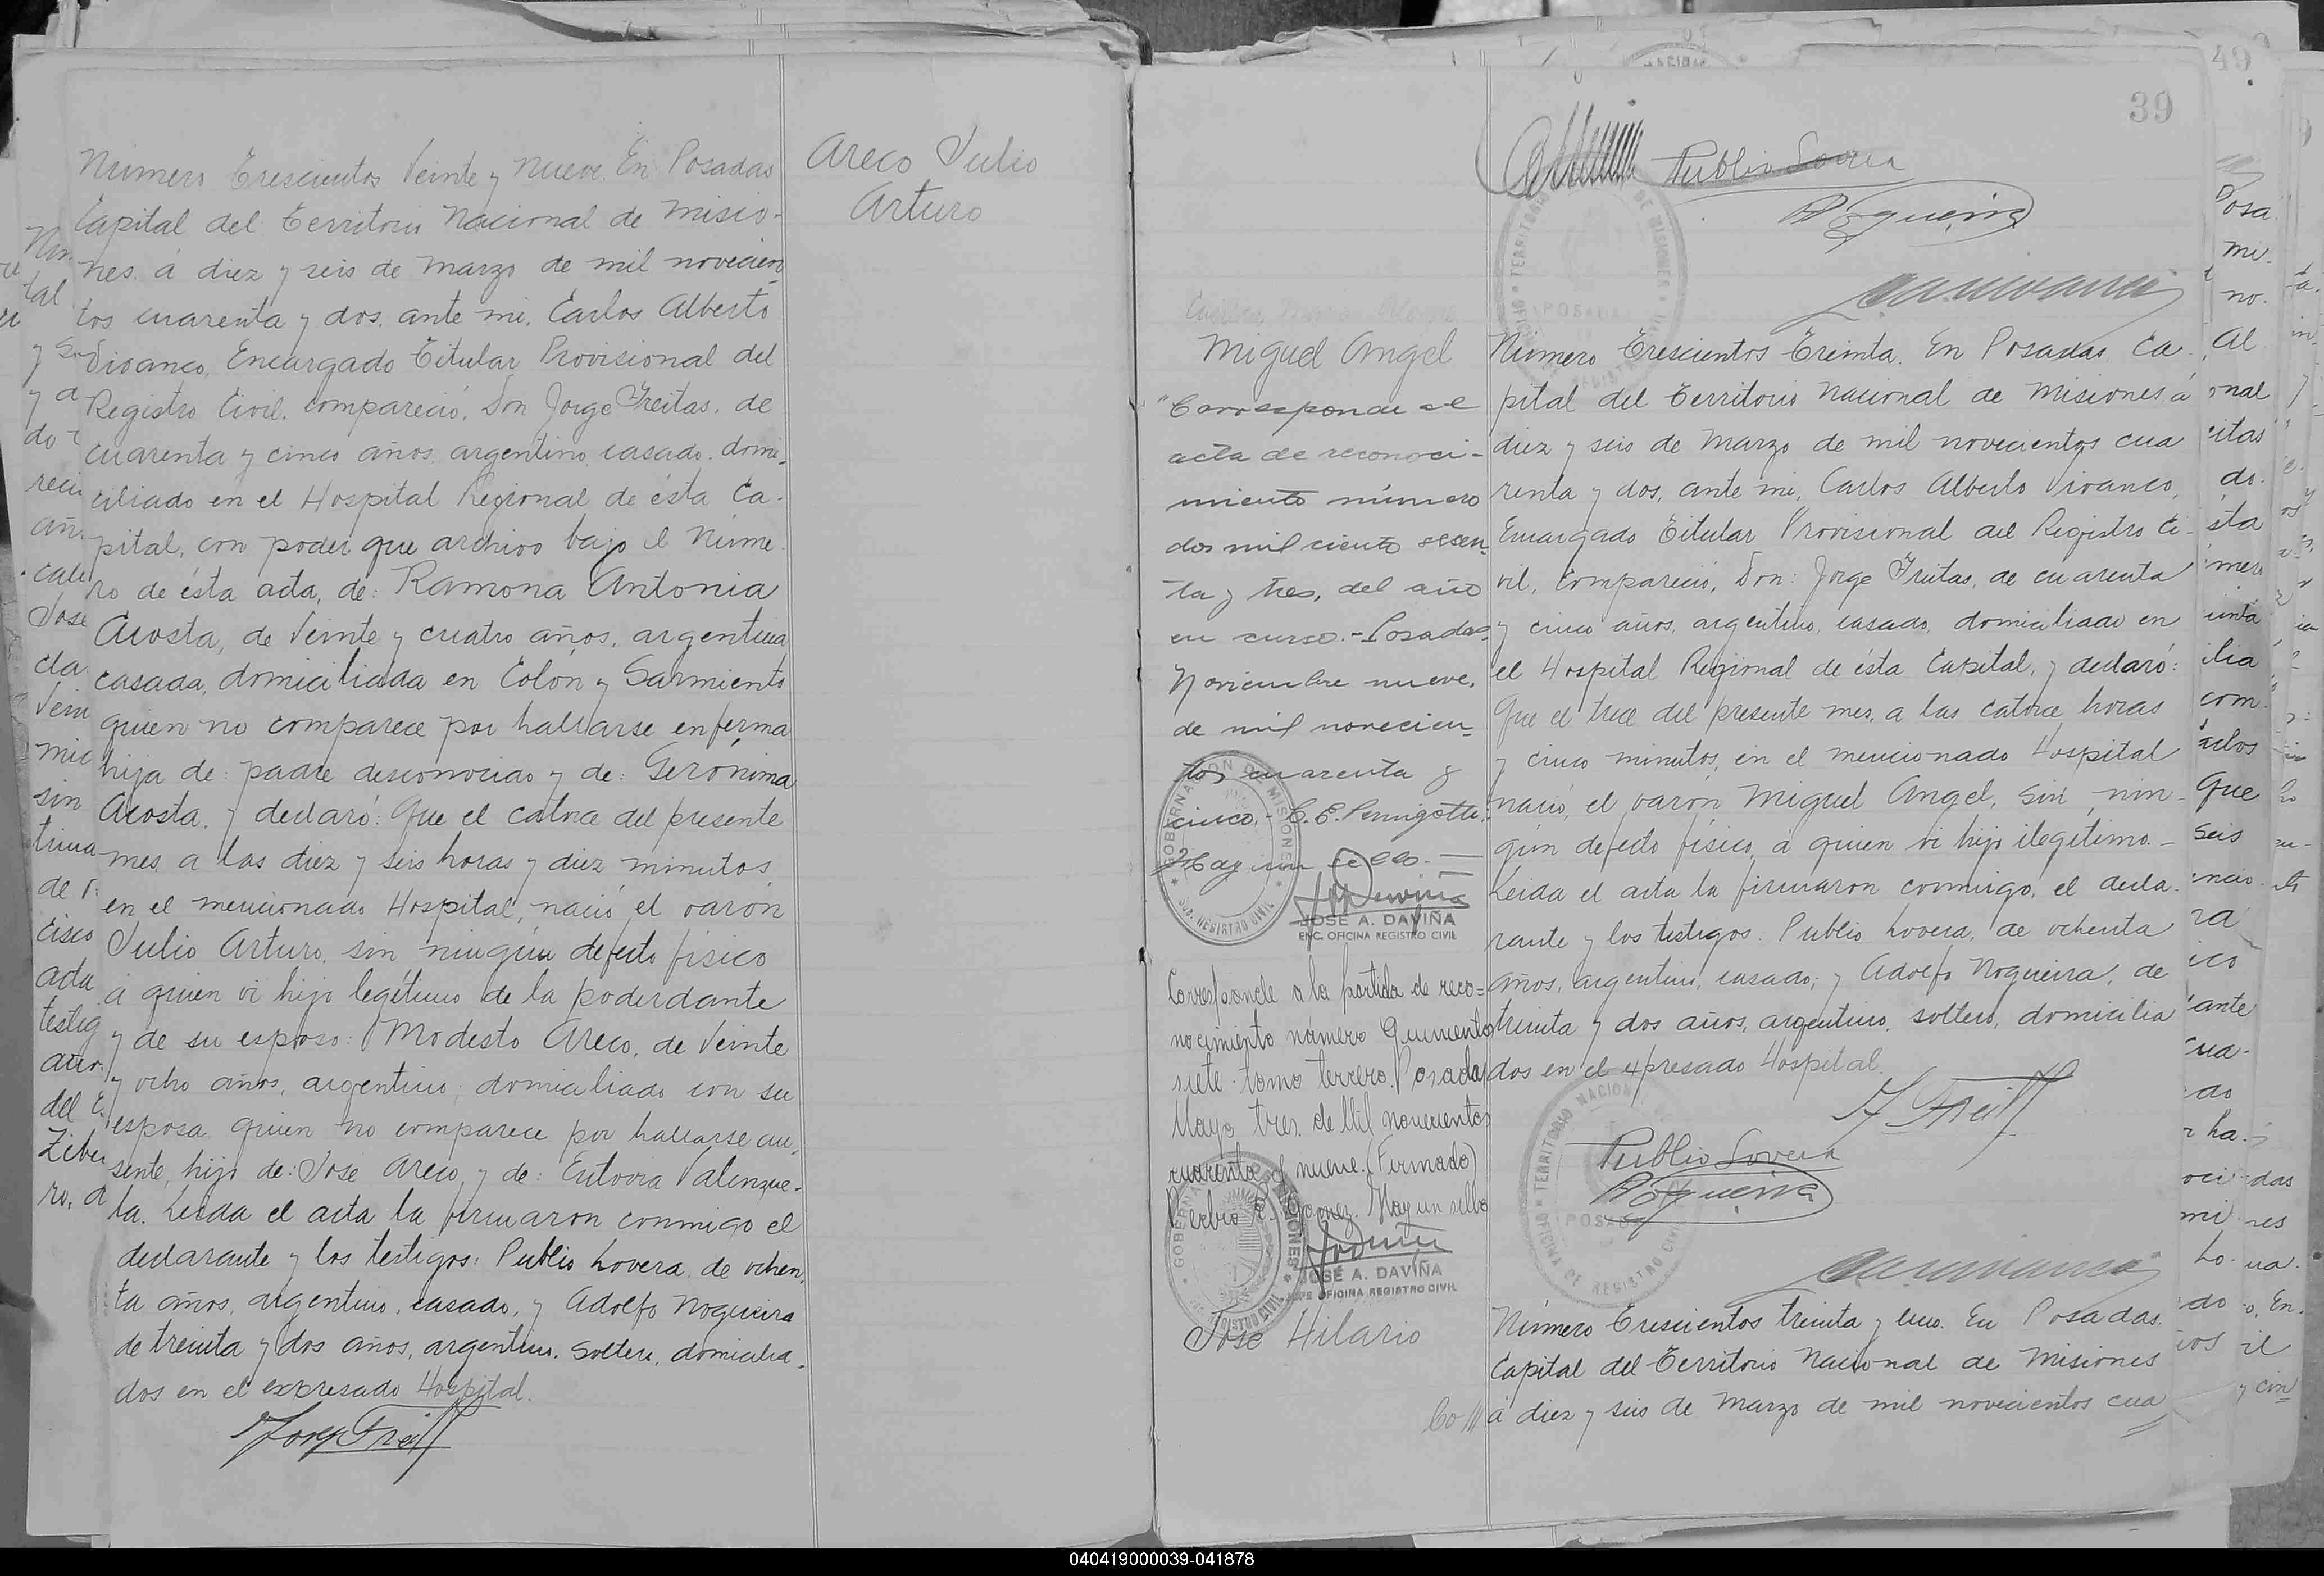 Número Trescientos Veinte y Nueve. En Posadas
Capital del Territorio Nacional de Misio-
nes. á diez y seis de Marzo de mil novecien
tos cuarenta y dos, ante mi, Carlos Alberto
Vivanco, Encargado Titular Provisional del
Registro Civil. compareció, Don Jorge Freitas, de
cuarenta y cinco años. argentino casado. domi-
ciliado en el Hospital Regional de ésta Ca-
pital, con poder que archivo bajo el Núme
ro de ésta acta, de: Ramona Antonia
Acosta, de Veinte y cuatro años, argentina
casada, domiciliada en Colón y Sarmiento
quien no comparece por hallarse enferma
hija de: padre desconocido y de: Gerónima
Acosta. y declaró: Que el catorce del presente
mes, a las diez y seis horas y diez minutos
en el mencionado Hospital, nació el varón
Julio Arturo, sin ningún defecto físico
á quien vi hijo legítimo de la poderdante
y de su esposo: Modesto Areco, de Veinte
y ocho años, argentino, domiciliado con su
esposa quien no comparece por hallarse au-
sente, hijo de: José Areco, y de: Valenzue-
la. Leida el acta la firmaron conmigo el
declarante y los testigos: Publio Lovera, de ochen
ta años, argentino, casado, y Adolfo Nogueira
de treinta y dos años, argentino. Soltero, domicilia-
dos en el expresado Hospital.
Areco Julio
Arturo
39
49
Publio Lovera
Miguel Angel
"Corresponde al
acta de reconoci-
miento número
dos mil ciento sesen-
ta y tres, del año
en curso.- Posadas
Noviembre nueve,
de mil novecien-
tos cuarenta y
cinco.-
Hay un sello.-
GOBERNACION DE MISIONES
REGISTRO CIVIL
JOSÉ A. DAVIÑA
ENC. OFICINA REGISTRO CIVIL
Corresponde a la partida de reco-
nocimiento número Quinientos
siete tomo tercero. Posadas
Mayo tres de Mil novecientos
cuarenta y nueve. (Firmado)
Gomez. Hay un sello
JOSÉ A. DAVIÑA
JEFE OFICINA REGISTRO CIVIL
José Hilario
Número Trescientos Treinta. En Posadas, Ca-
pital del Territorio Nacional de Misiones, á
diez y seis de Marzo de mil novecientos cua
renta y dos, ante mi, Carlos Alberto Vivanco,
Encargado Titular Provisional del Registro Ci-
vil, Compareció, Don: Jorge Freitas, de cuarenta
y cinco años, argentino, casado, domiciliado en
el Hospital Regional de ésta Capital, y declaró:
Que el trece del presente mes, a las catorce horas
y cinco minutos, en el mencionado Hospital
nació, el varón Miguel Angel, sin nin-
gún defecto físico, á quien vi hijo ilegítimo.-
Leida el acta la firmaron conmigo, el decla-
rante y los testigos: Publio Lovera, de ochenta
años, argentino, casado; y Adolfo Nogueira, de
treinta y dos años, argentino, soltero, domicilia
dos en el expresado Hospital.
Publio Lovera
Número Trescientos treinta y uno. En Posadas
Capital del Territorio Nacional de Misiones
á diez y seis de Marzo de mil novecientos cua
040419000039-041878